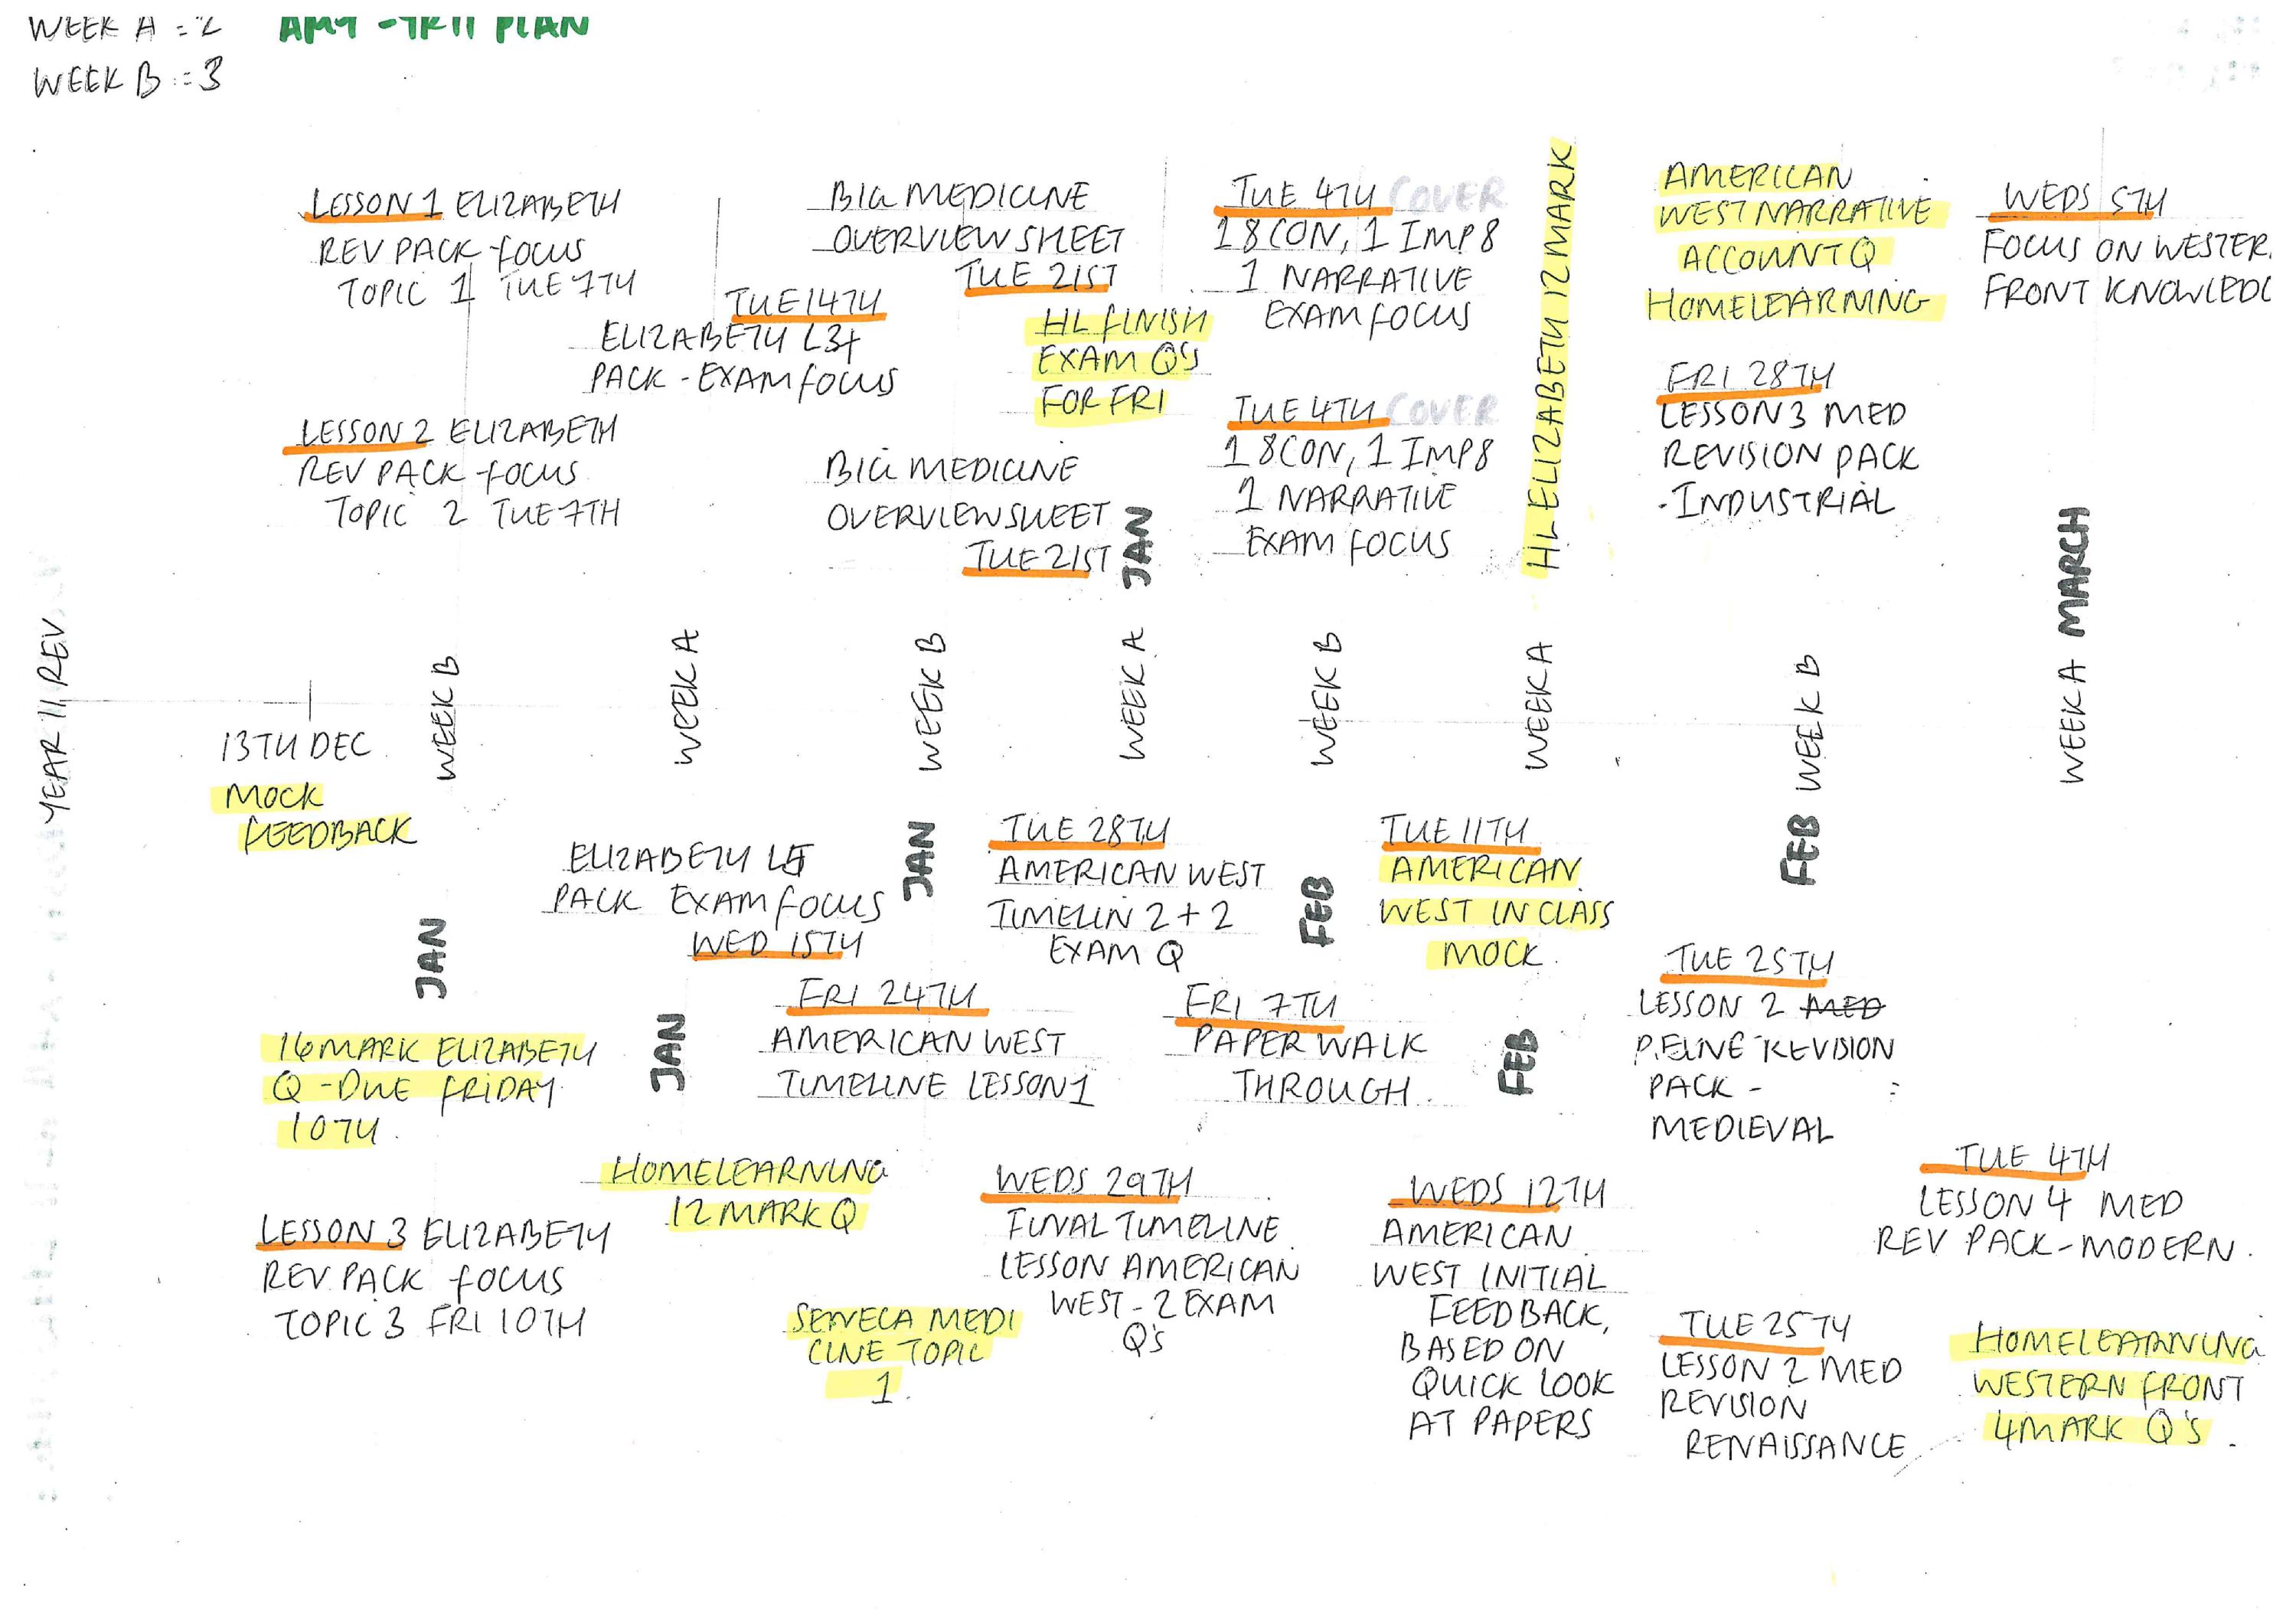 WEEK A = 2
AMY - YR11 PLAN
WEEK B = 3
LESSON 1 ELIZABETH
REV PACK - FOCUS
TOPIC 1 TUE 7TH
LESSON 2 ELIZABETH
REV PACK - FOCUS
TOPIC 2 TUE 7TH
TUE 14TH
ELIZABETH L3+
PACK - EXAM FOCUS
BIG MEDICINE
OVERVIEW SHEET
TUE 21ST
HL FINISH
EXAM Q'S
FOR FRI
BIG MEDICINE
OVERVIEW SHEET
TUE 21ST
TUE 4TH COVER
1 8CON, 1 IMP8
1 NARRATIVE
EXAM FOCUS
TUE 4TH COVER
1 8CON, 1 IMP8
1 NARRATIVE
EXAM FOCUS
HL ELIZABETH 12 MARK
AMERICAN
WEST NARRATIVE
ACCOUNT Q
HOMELEARNING
FRI 28TH
LESSON 3 MED
REVISION PACK
- INDUSTRIAL
WEDS 5TH
FOCUS ON WESTER
FRONT KNOWLEDG
YEAR 11 REV
WEEK B
JAN
WEEK A
JAN
WEEK B
JAN
WEEK A JAN
WEEK B
FEB
WEEK A
FEB
FEB WEEK B
WEEK A MARCH
13TH DEC
MOCK
FEEDBACK
16 MARK ELIZABETH
Q - DUE FRIDAY
10TH
LESSON 3 ELIZABETH
REV PACK FOCUS
TOPIC 3 FRI 10TH
ELIZABETH
PACK EXAM FOCUS
WED 15TH
HOMELEARNING
12 MARK Q
FRI 24TH
AMERICAN WEST
TIMELINE LESSON 1
SENECA MEDI
CINE TOPIC
1
TUE 28TH
AMERICAN WEST
TIMELIN 2 + 2
EXAM Q
WEDS 29TH
FINAL TIMELINE
LESSON AMERICAN
WEST - 2 EXAM
Q'S
FRI 7TH
PAPER WALK
THROUGH
TUE 11TH
AMERICAN
WEST IN CLASS
MOCK
WEDS 12TH
AMERICAN
WEST INITIAL
FEEDBACK,
BASED ON
QUICK LOOK
AT PAPERS
TUE 25TH
LESSON 2 MED
REVISION
PACK -
MEDIEVAL
TUE 25TH
LESSON 2 MED
REVISION
RENAISSANCE
TUE 4TH
LESSON 4 MED
REV PACK - MODERN.
HOMELEARNING
WESTERN FRONT
4 MARK Q'S.